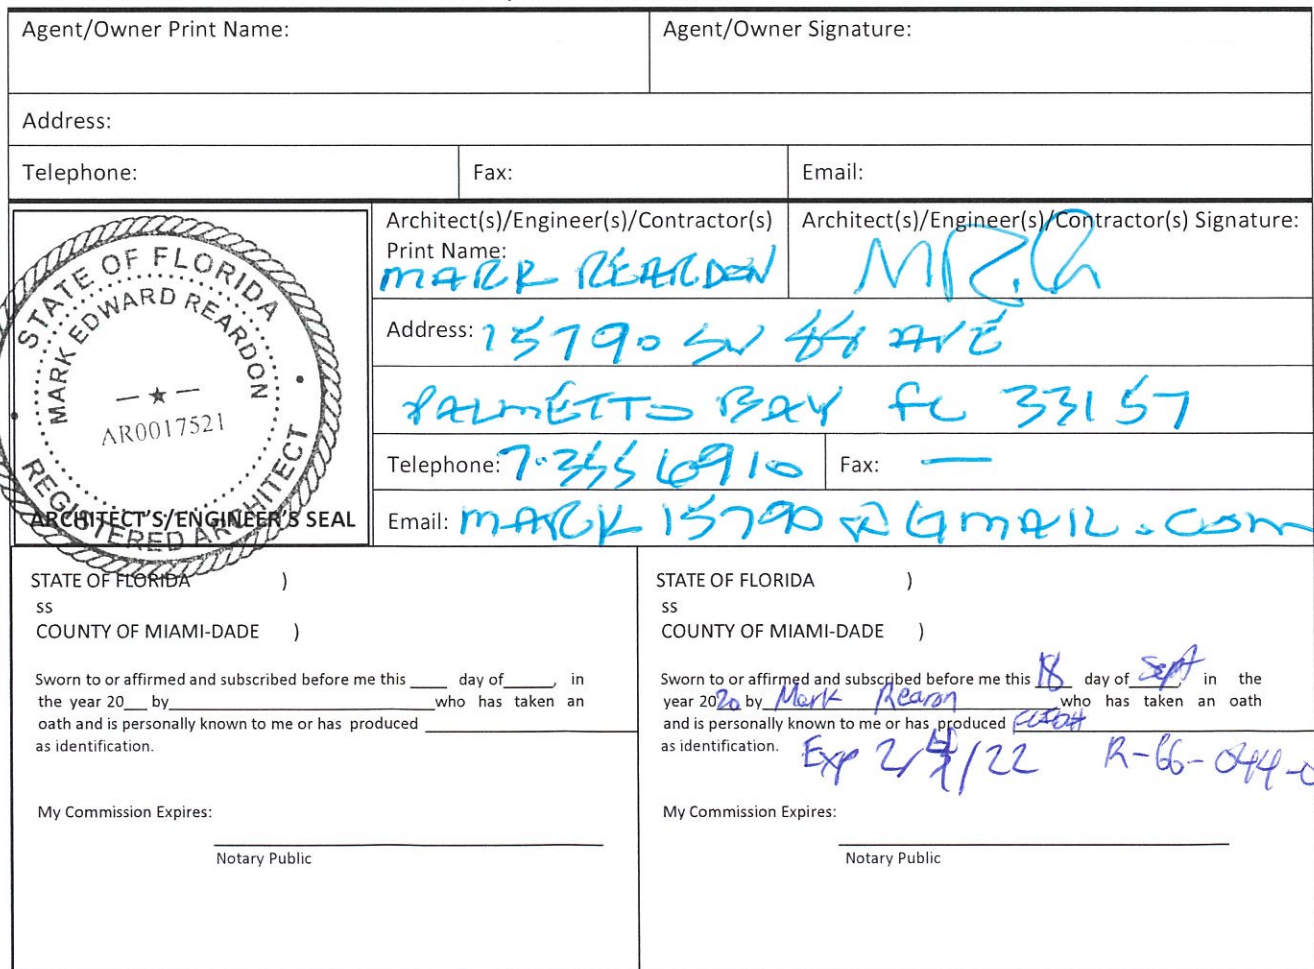 Agent/Owner Print Name:
Agent/Owner Signature:
Address:
Telephone:
Fax:
Email:
STATE OF FLORIDA
MARK EDWARD REARDON
AR0017521
REGISTERED ARCHITECT
ARCHITECT'S/ENGINEER'S SEAL
Architect(s)/Engineer(s)/Contractor(s)
Print Name:
MARK REARDON
Architect(s)/Engineer(s)/Contractor(s) Signature:
Address: 15790 SW 88 AVE
PALMETTO BAY FL 33157
Telephone:
Fax: —
Email: MARK15790@GMAIL.COM
STATE OF FLORIDA )
ss
COUNTY OF MIAMI-DADE )
Sworn to or affirmed and subscribed before me this ____ day of_____, in
the year 20__ by____________who has taken an
oath and is personally known to me or has produced ____________
as identification.
My Commission Expires:
Notary Public
STATE OF FLORIDA )
ss
COUNTY OF MIAMI-DADE )
Sworn to or affirmed and subscribed before me this 18 day of Sept, in the
year 2020 by Mark Rearon who has taken an oath
and is personally known to me or has produced
as identification. Exp 2/ /22 R-66-044-0
My Commission Expires:
Notary Public